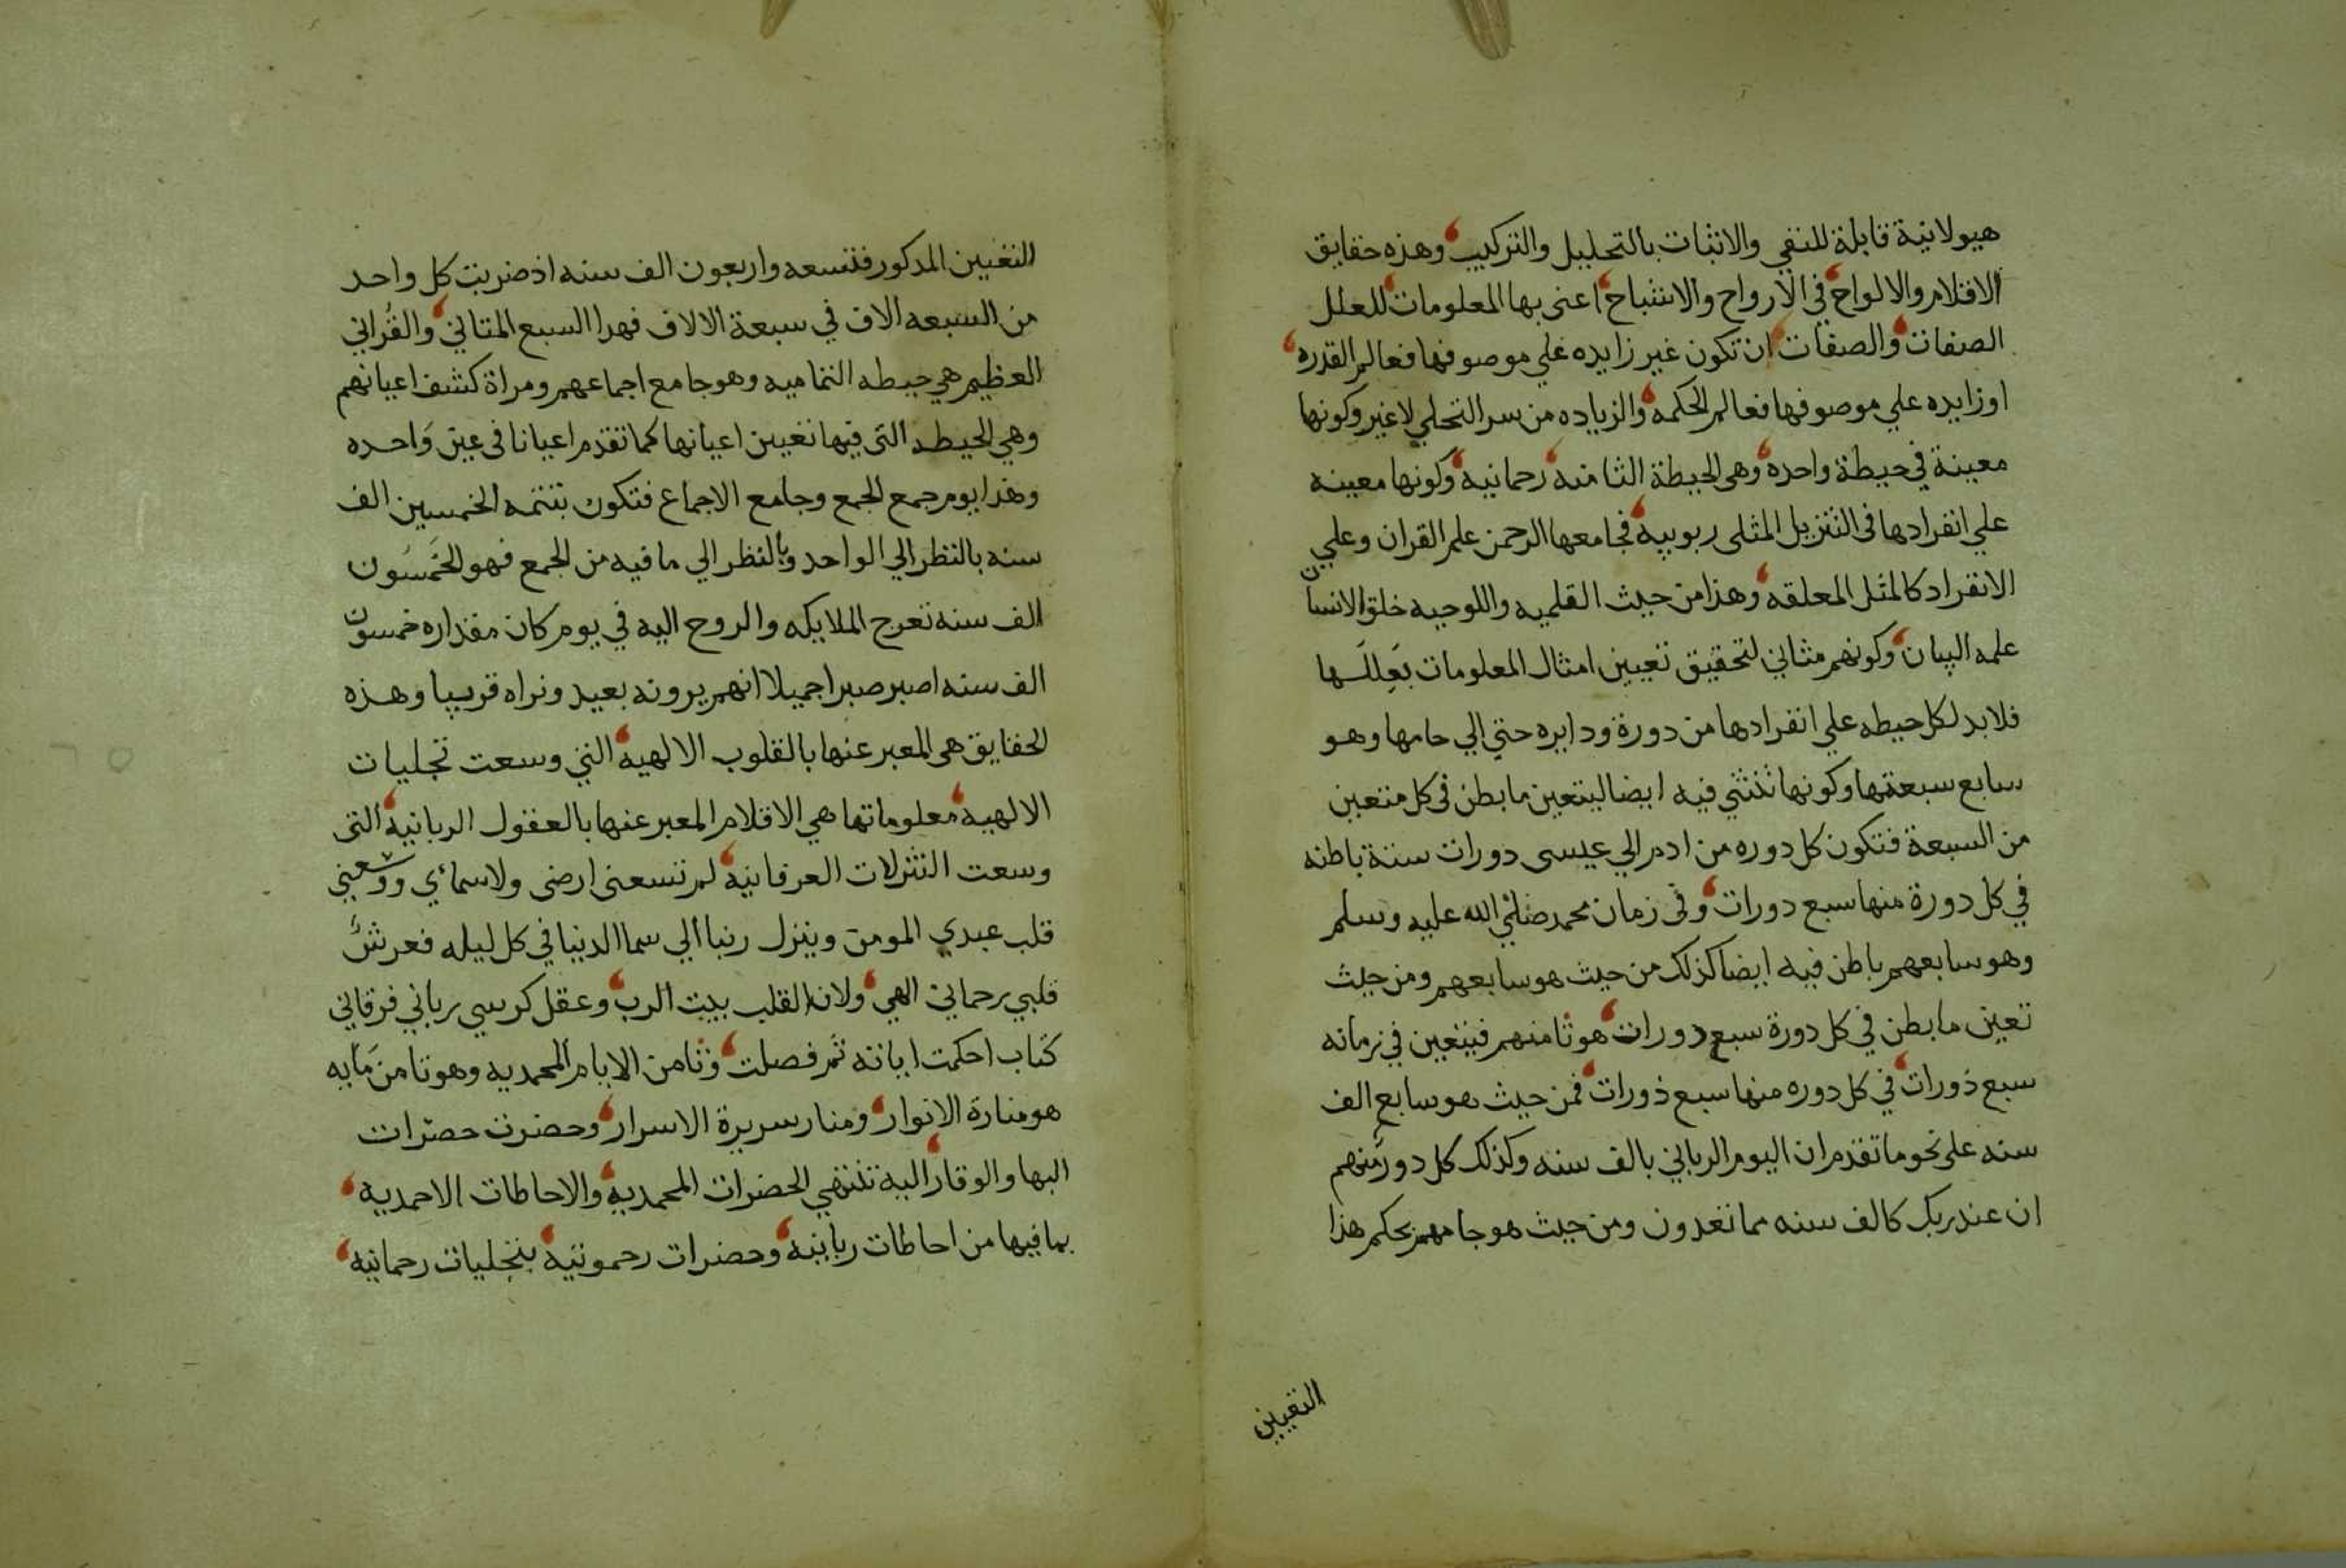 هيولانية قابلة للنفي والاثبات بالتحليل والتركيب وهذه حقايق
الاقلام والالواح في الارواح والاشباح اعني بها المعلومات للعلل
الصفات والصفات ان تكون غير زايده علي موصوفها فعالم القدره
اوزايده علي موصوفها فعالم الحكمه والزياده من سر التحلي لاغير وكونها
معينة في حيطة واحده وهي الحيطة الثامنه رحمانية وكونها معينه
علي انفرادها في التنزيل المثلي ربوبية فجامعها الرحمن علم القران وعلي
الانفراد كالمثل المعلقه وهذا من حيث القلميه واللوحيه خلق الانسان
علمه البيان وكونهم مثاني لتحقيق تعيين امثال المعلومات بعللها
فلابد لكل حيطه علي انفرادها من دورة ودايره حتي الي حامها وهو
سابع سبعتها وكونها تنثني فيه ايضا ليتعين ما بطن في كل متعين
من السبعة فتكون كل دوره من ادم الي عيسى دورات ستة باطنه
في كل دورة منها سبع دورات وفي زمان محمد صلي الله عليه وسلم
وهو سابعهم باطن فيه ايضا كذلك من حيث هو سابعهم ومن حيث
تعين ما بطن في كل دورة سبع دورات هو ثامنهم فيتعين في زمانه
سبع دورات في كل دوره منها سبع دورات فمن حيث هو سابع الف
سنه على نحو ما تقدم ان اليوم الرباني بالف سنه وكذلك كل دور منهم
ان عند ربك كالف سنه مما تعدون ومن حيث هو جامعهم بحكم هذا
التعيين
التعيين المذكور فتسعه واربعون الف سنه اذ ضربت كل واحد
من السبعه الاف في سبعة الالاف فهذا السبع المثاني والقراني
العظيم هي حيطه التماميه وهو جامع اجماعهم ومراة كشف اعيانهم
وهي الحيطه التي فيها تعيين اعيانها كما تقدم اعيانا في عين واحده
وهذا يوم جمع الجمع وجامع الاجماع فتكون بتتمه الخمسين الف
سنه بالنظر الي الواحد وبالنظر الي ما فيه من الجمع فهو الخمسون
الف سنه تعرج الملايكه والروح اليه في يوم كان مقداره خمسون
الف سنه اصبر صبرا جميلا انهم يرونه بعيد ونراه قريبا وهذه
الحقايق هي المعبر عنها بالقلوب الالهية التي وسعت تجليات
الالهية معلوماتها هي الاقلام المعبر عنها بالعقول الربانية التي
وسعت التنزلات العرفانية لم تسعني ارضى ولاسمائي ووسعني
قلب عبدي المومن وينزل ربنا الي سما الدنيا في كل ليله فعرش
قلبي رحماني الهي ولان القلب بيت الرب وعقل كرسي رباني فرقاني
كتاب احكمت اياته ثم فصلت وثامن الايام المحمديه وهو تامن مابه
هو منارة الانوار ومنار سريرة الاسرار وحضرت حضرات
البها والوقار اليه تنتهي الحضرات المحمدية والاحاطات الاحمدية
بما فيها من احاطات ربانية وحضرات رحموتية بتجليات رحمانية